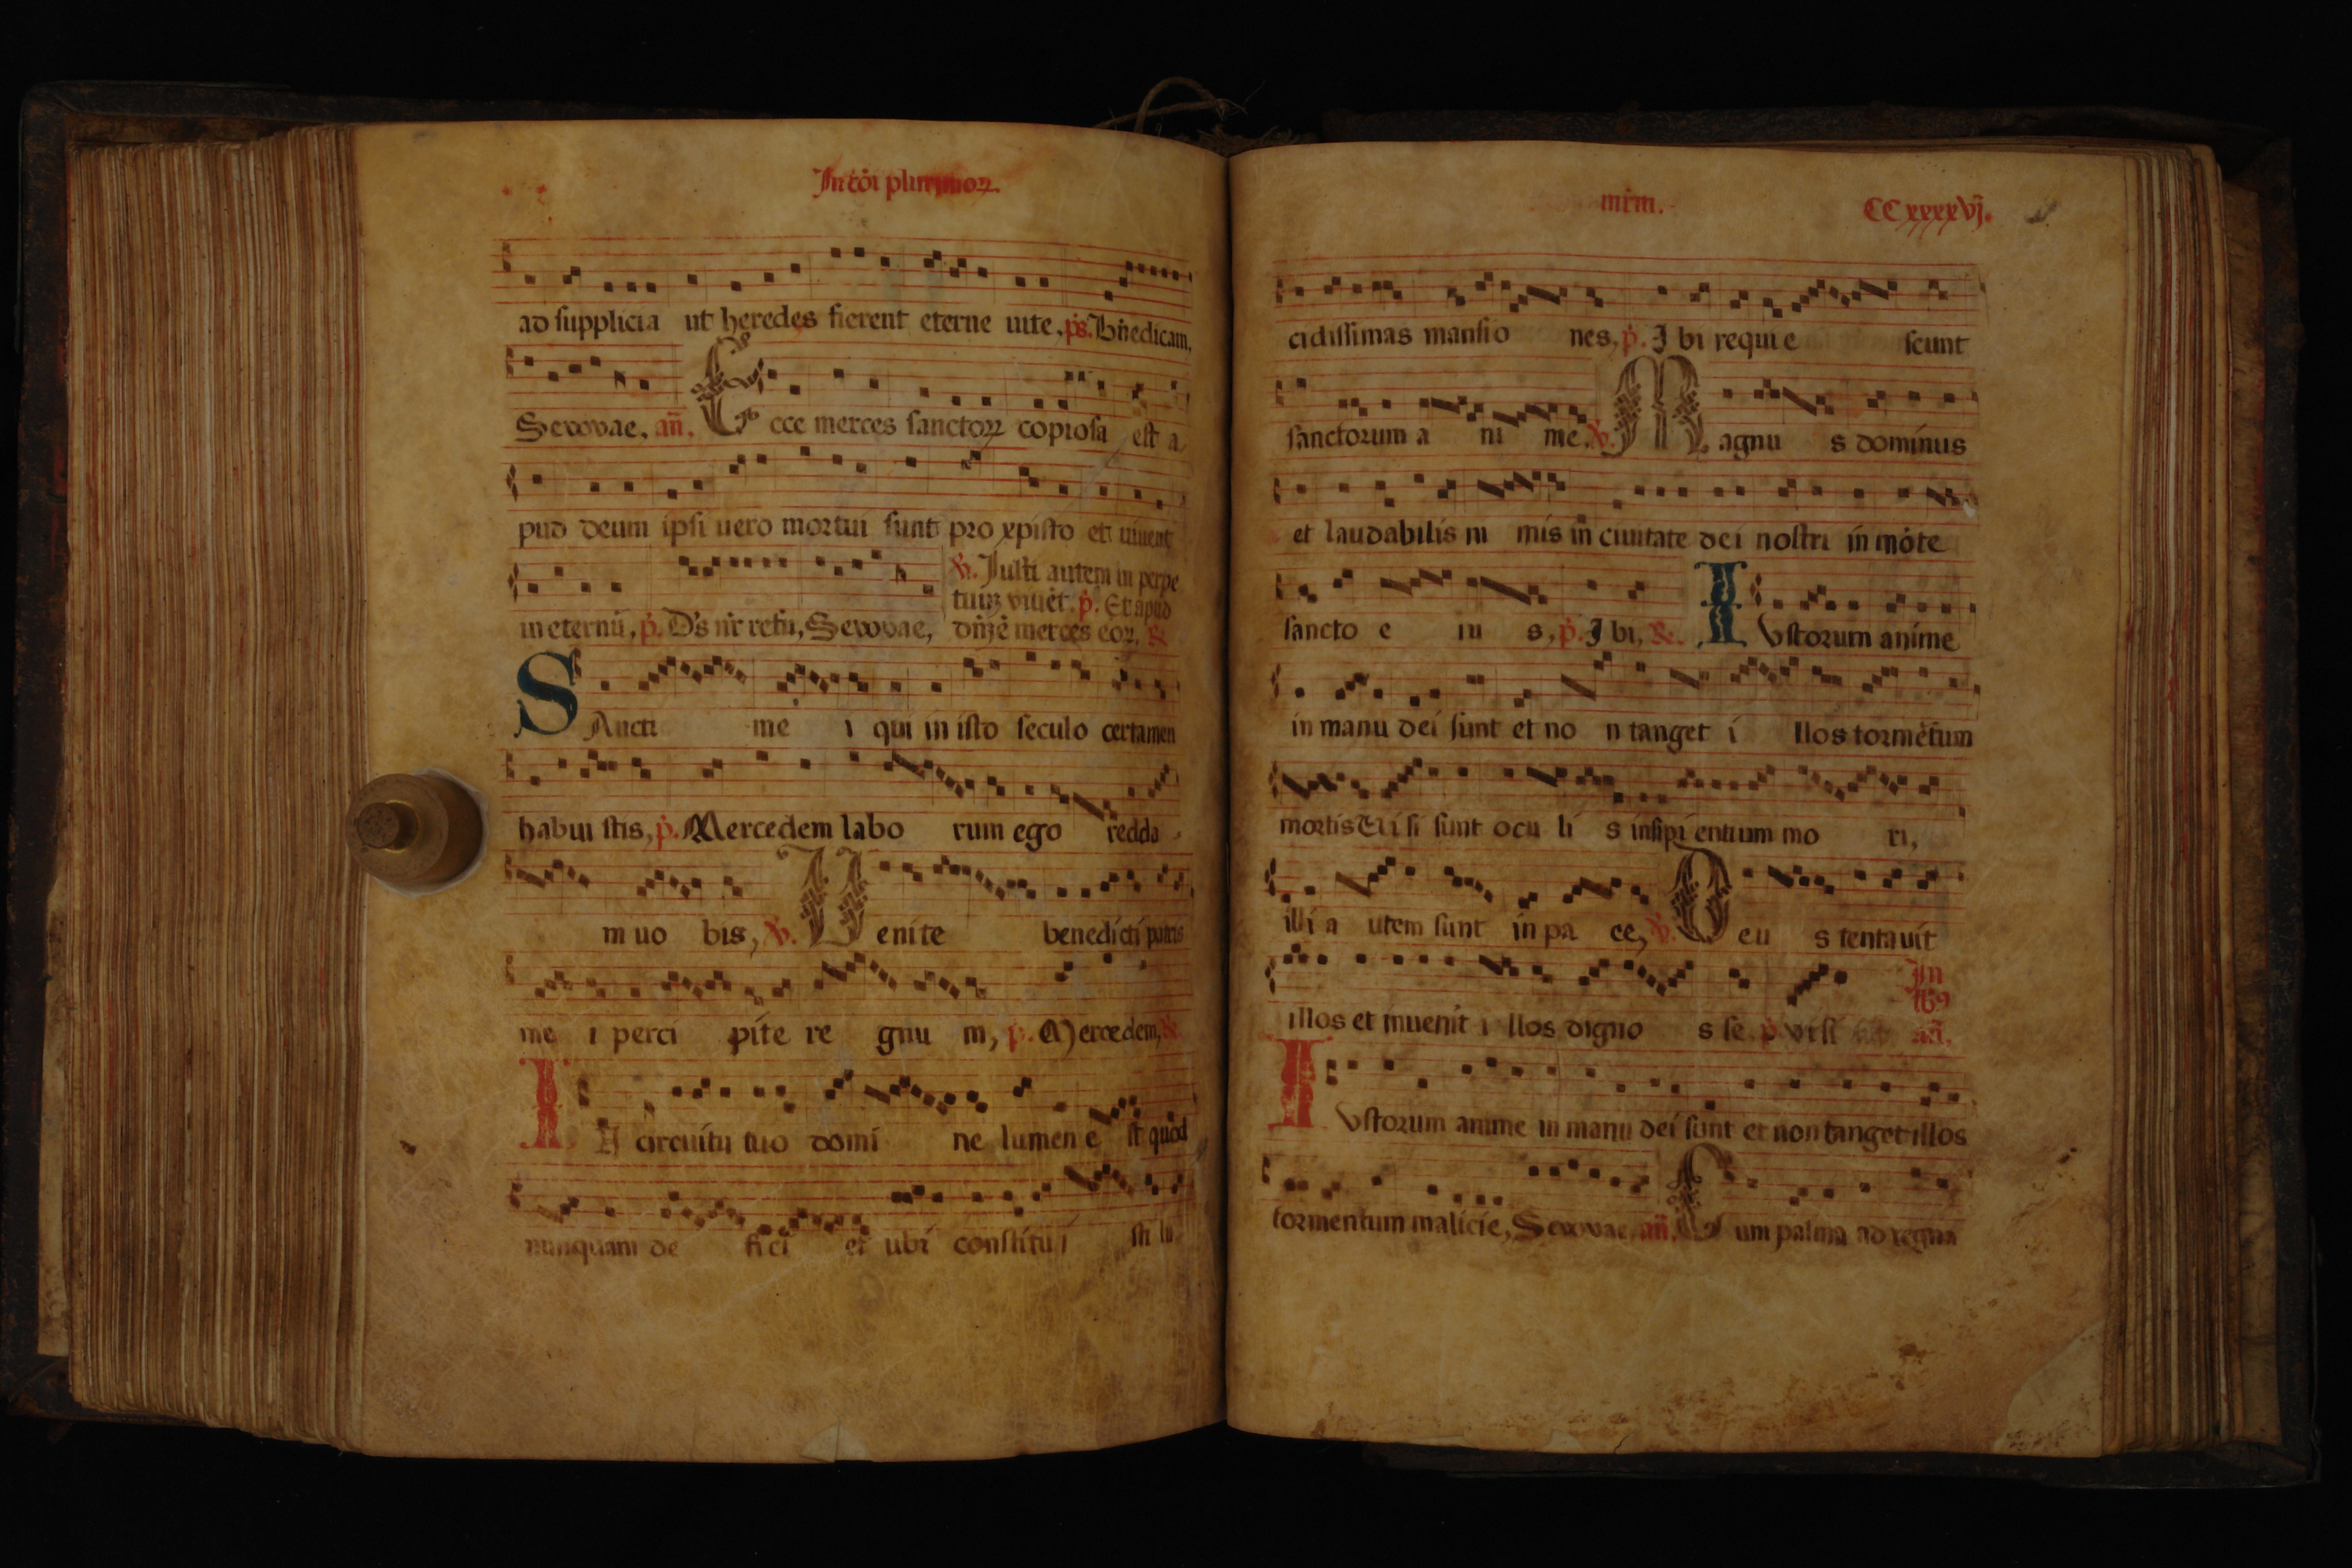 In cōi plurimoꝝ.
ad supplicia ut heredes fierent eterne uite, ps. Bn̄edicam,
Seuouae, an̄. Ecce merces sanctoꝝ copiosa est a
pud deum ipsi uero mortui sunt pro xpisto et uiuent
℣. Iusti autem in perpe
tuuꝫ viuēt. p̄. Et apud
in eternū, p̄. Ds nr̄ refū, Seuouae, dn̄ꝫ ē merces eoꝝ. &
SAncti me i qui in isto seculo certamen
habui stis, p̄. Mercedem labo rum ego redda
m uo bis, ℣. Uenite benedicti patris
me i perci pite re gnu m, p̄. Mercedem, &
IN circuitu tuo domi ne lumen e st quod
nunquam de fici et ubi constitu i sti lu
mr̄m.
CCxxxxvj.
cidissimas mansio nes, p̄. I bi requi e scunt
sanctorum a ni me. ℣. Magnu s dominus
et laudabilis ni mis in ciuitate dei nostri in mōte
sancto e iu s, p̄. I bi, &. IUstorum anime
in manu dei sunt et no n tanget i llos tormētum
mortis Ui si sunt ocu li s insipi entium mo ri,
illi a utem sunt in pa ce, ℣. Deu s tentauit
In
illos et inuenit i llos digno s se p̄. visi an̄.
IUstorum anime in manu dei sunt et non tanget illos
tormentum malicie, Seuouae. an̄. Cum palma ad regna